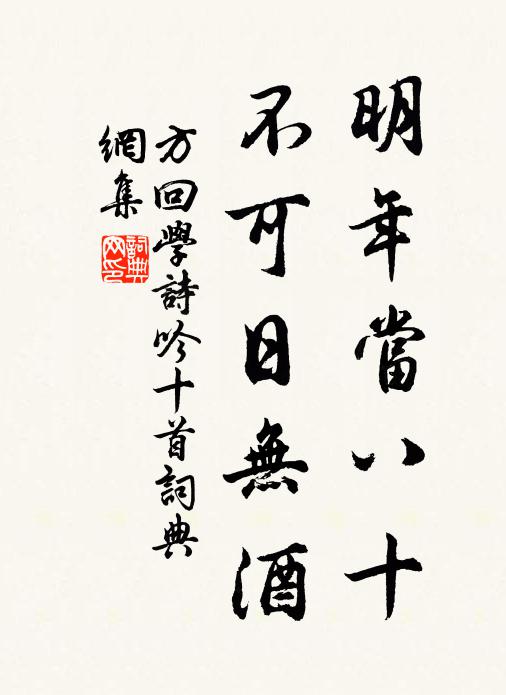 明年當八十
不可日無酒
方回學詩吟十首詞典
網集
詞典
网印